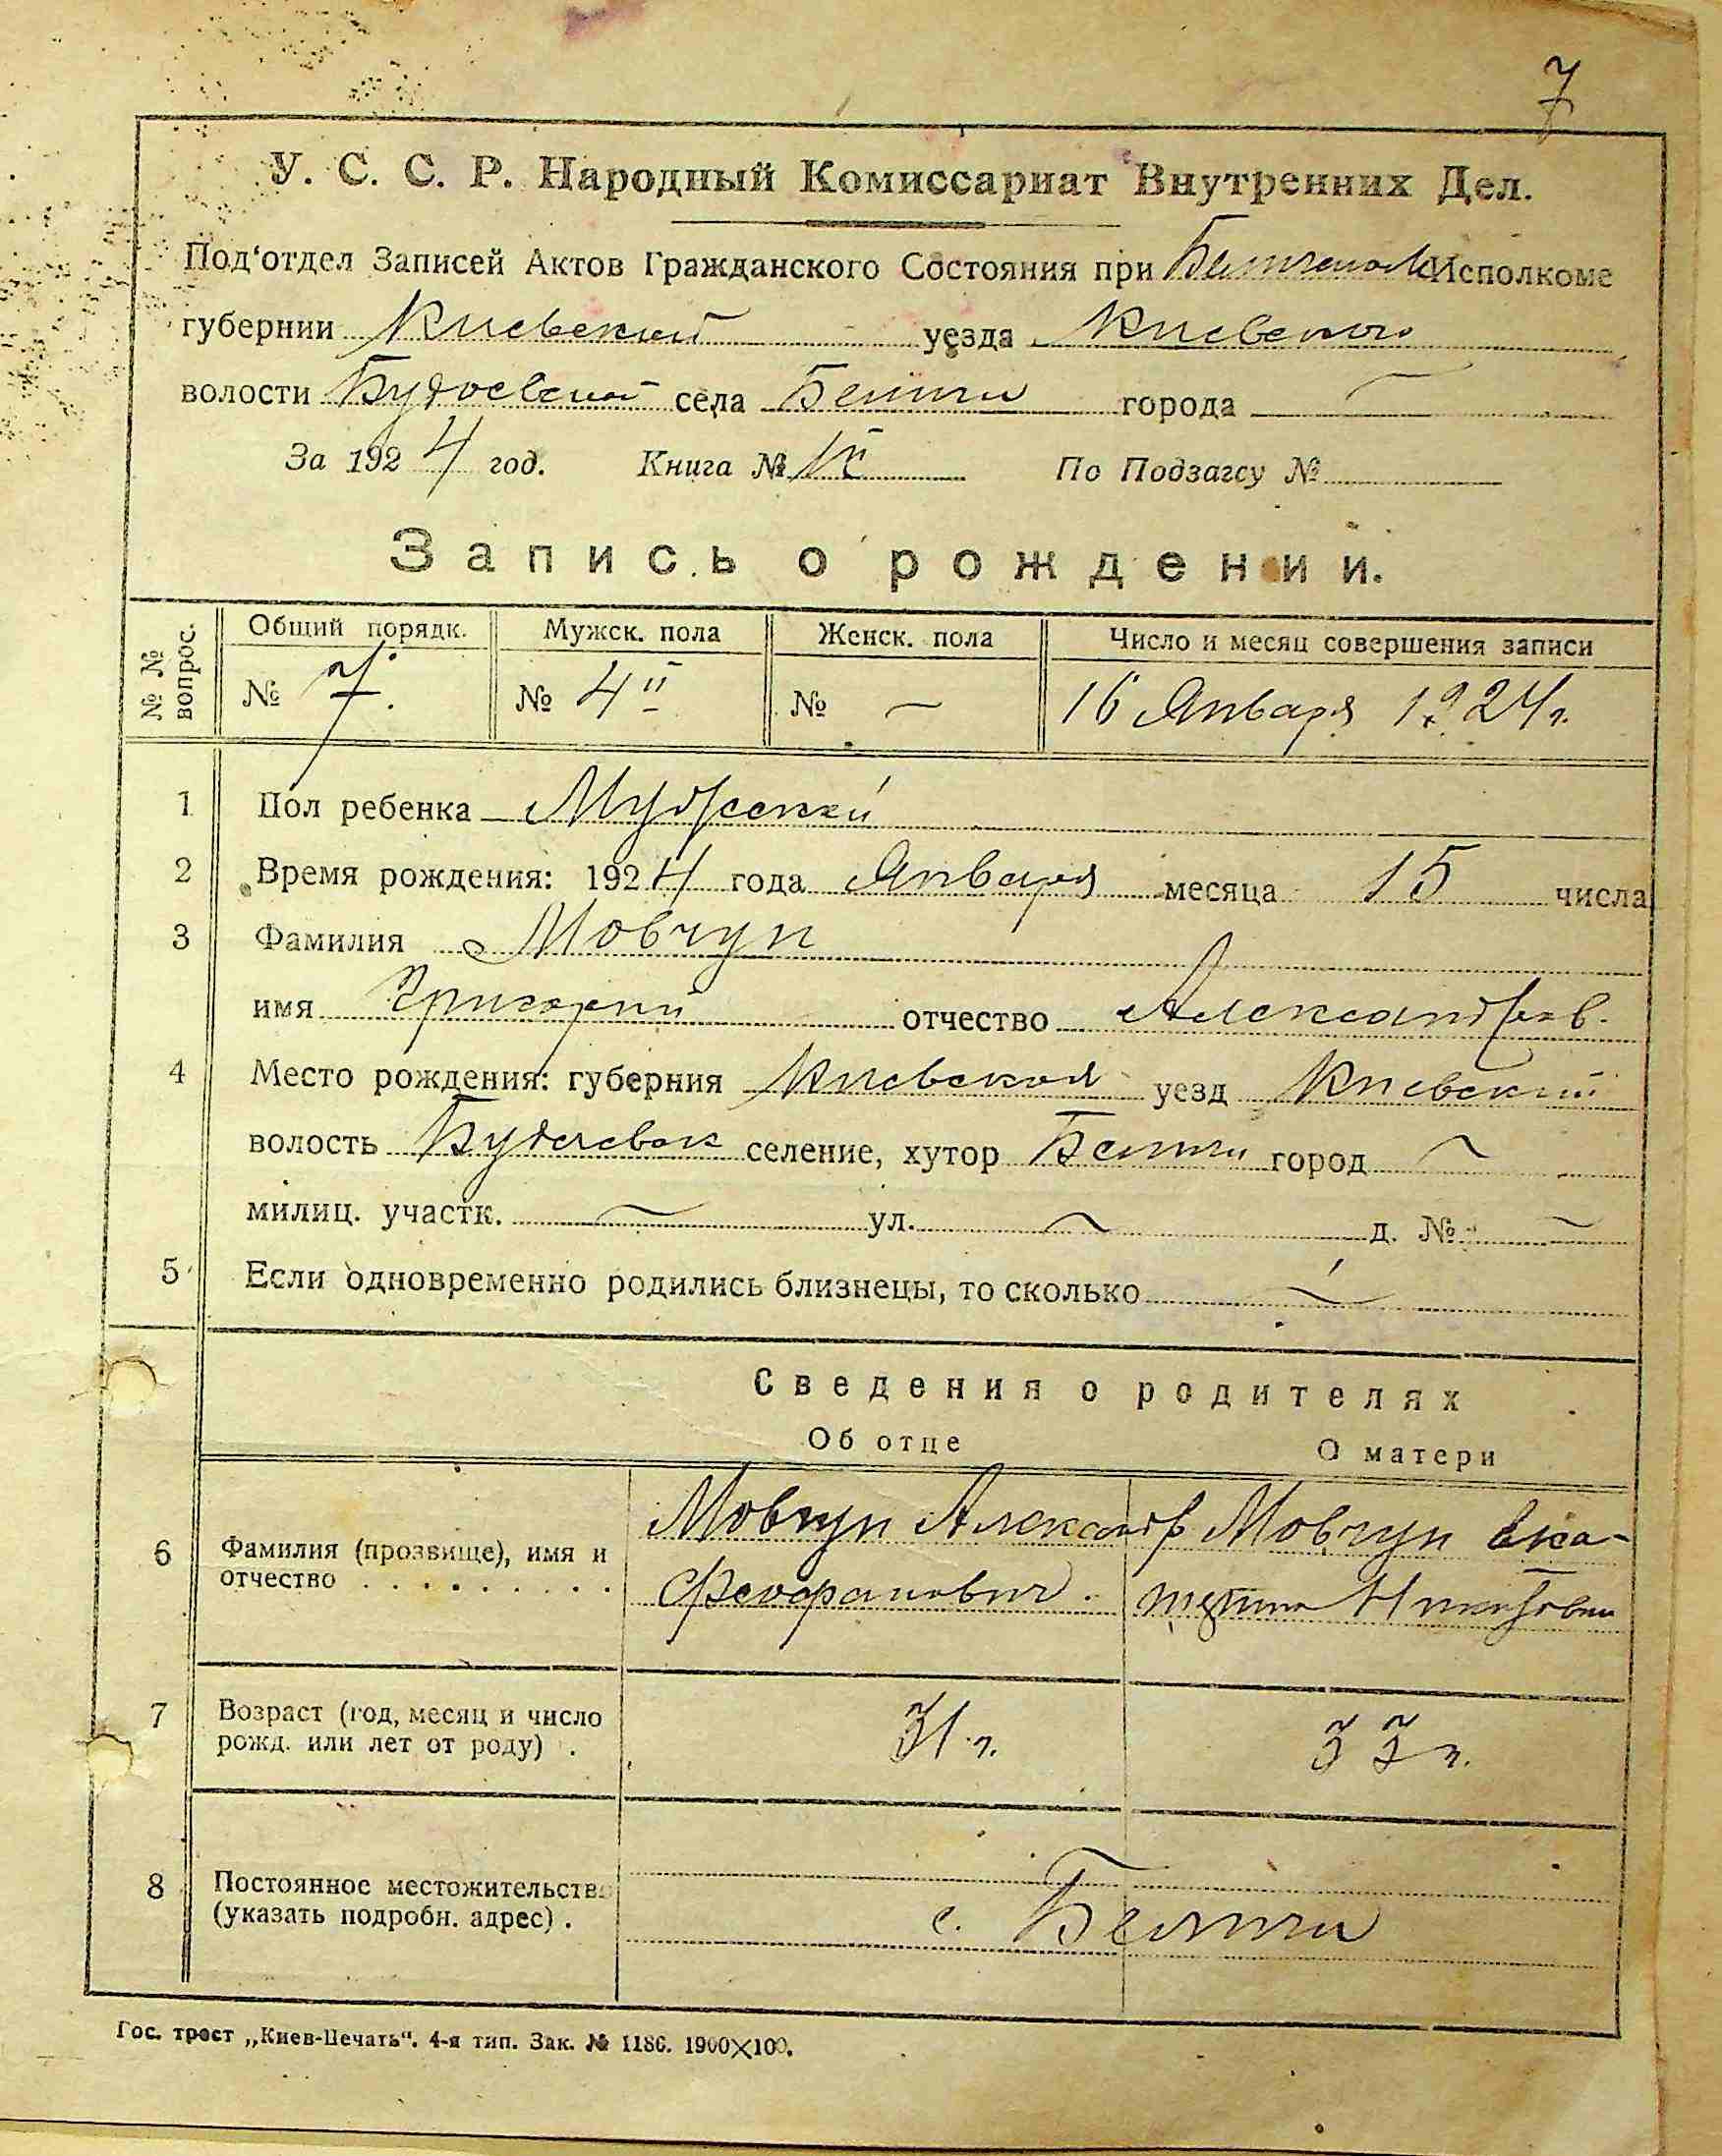 7
У. С. С. Р. Народный Комиссариат Внутренних Дел.
Под'отдел Записей Актов Гражданского Состояния при Исполкоме
губернии Киевский уезда Киевского
волости села города —
За 1924 год. Книга № По Подзагсу №
Запись о рождении.
№ № вопрос. Общий порядк. Мужск. пола Женск. пола Число и месяц совершения записи
№ 7. № 4 № — 16 Января 1924 г.
1 Пол ребенка Мужеский
2 Время рождения: 1924 года Января месяца 15 числа
3 Фамилия Мовчун
имя Григорий отчество Александров.
4 Место рождения: губерния Киевская уезд Киевский
волость селение, хутор город —
милиц. участк. — ул. — д. № —
5 Если одновременно родились близнецы, то сколько —
Сведения о родителях
Об отце О матери
6 Фамилия (прозвище), имя и отчество . . . . . . . . . Мовчун Александр Феофанович. Мовчун Ека-
7 Возраст (год, месяц и число рожд. или лет от роду) . 31 г. 33 г.
8 Постоянное местожительство (указать подробн. адрес) . с.
Гос. трест „Киев-Печать". 4-я тип. Зак. № 1186. 1900×100.